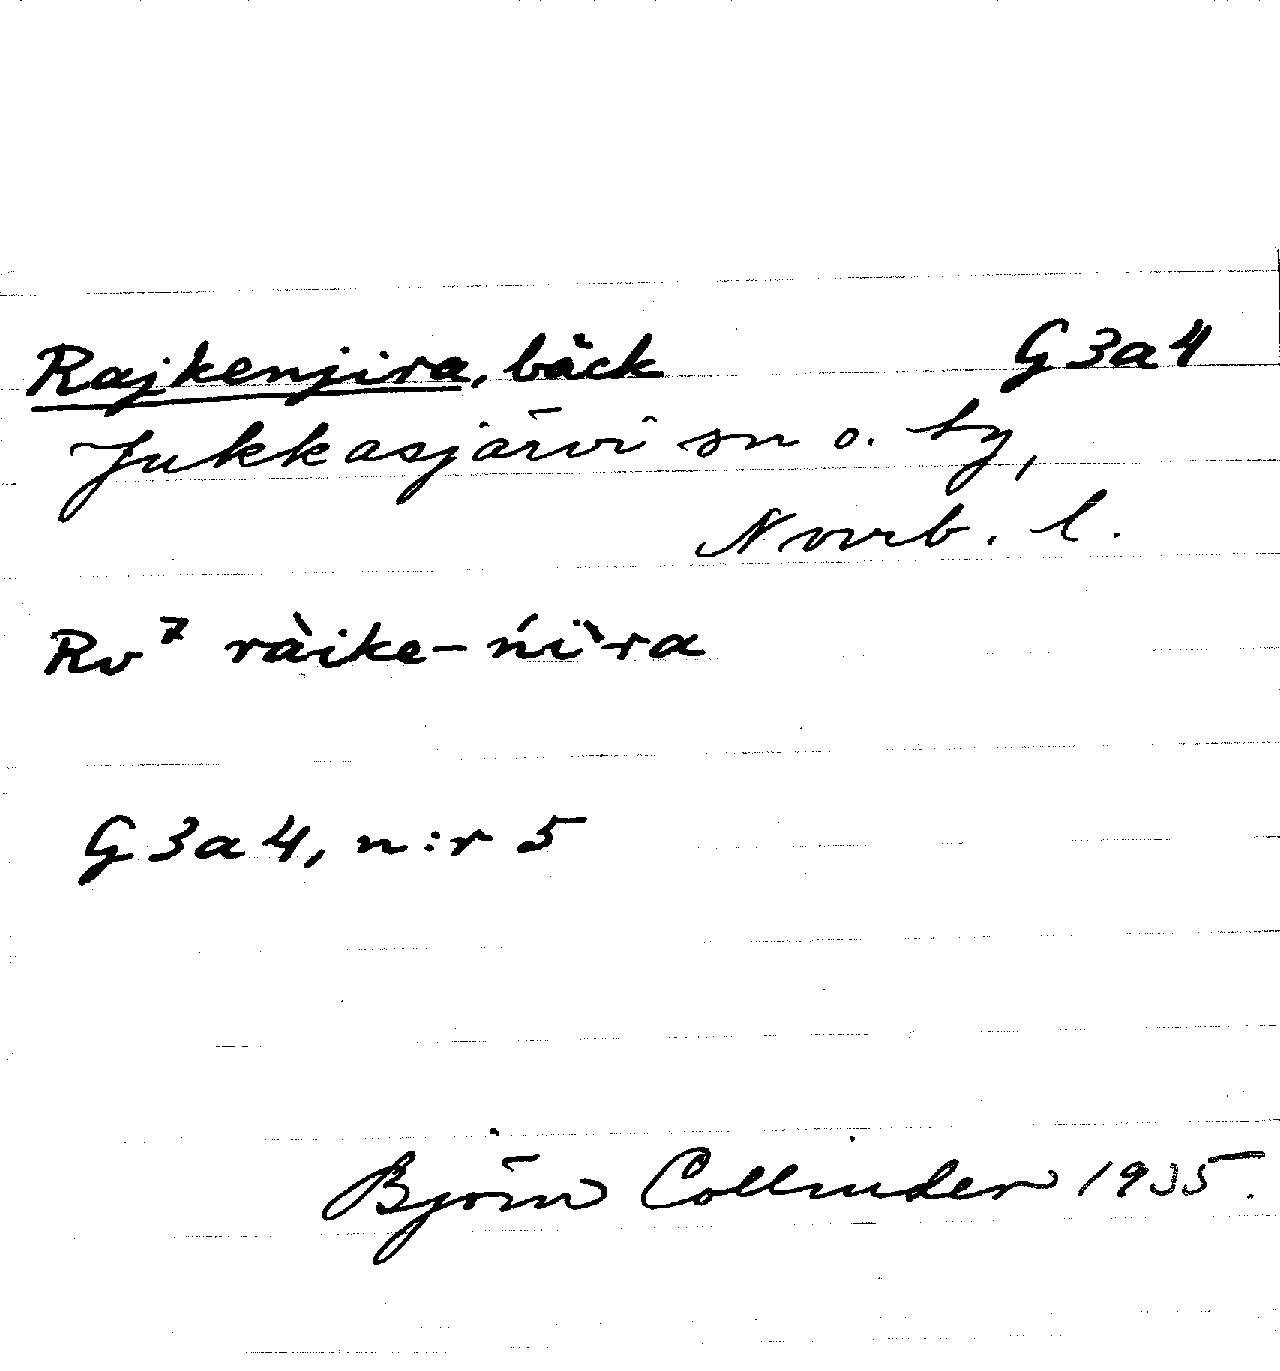 Rajkenjira, bäck G3a4
Jukkasjärvi sn o. by,
Norrb. l.
Rv⁷ ràike-ńìra
G3a4, n:r 5
Björn Collinder 1935.